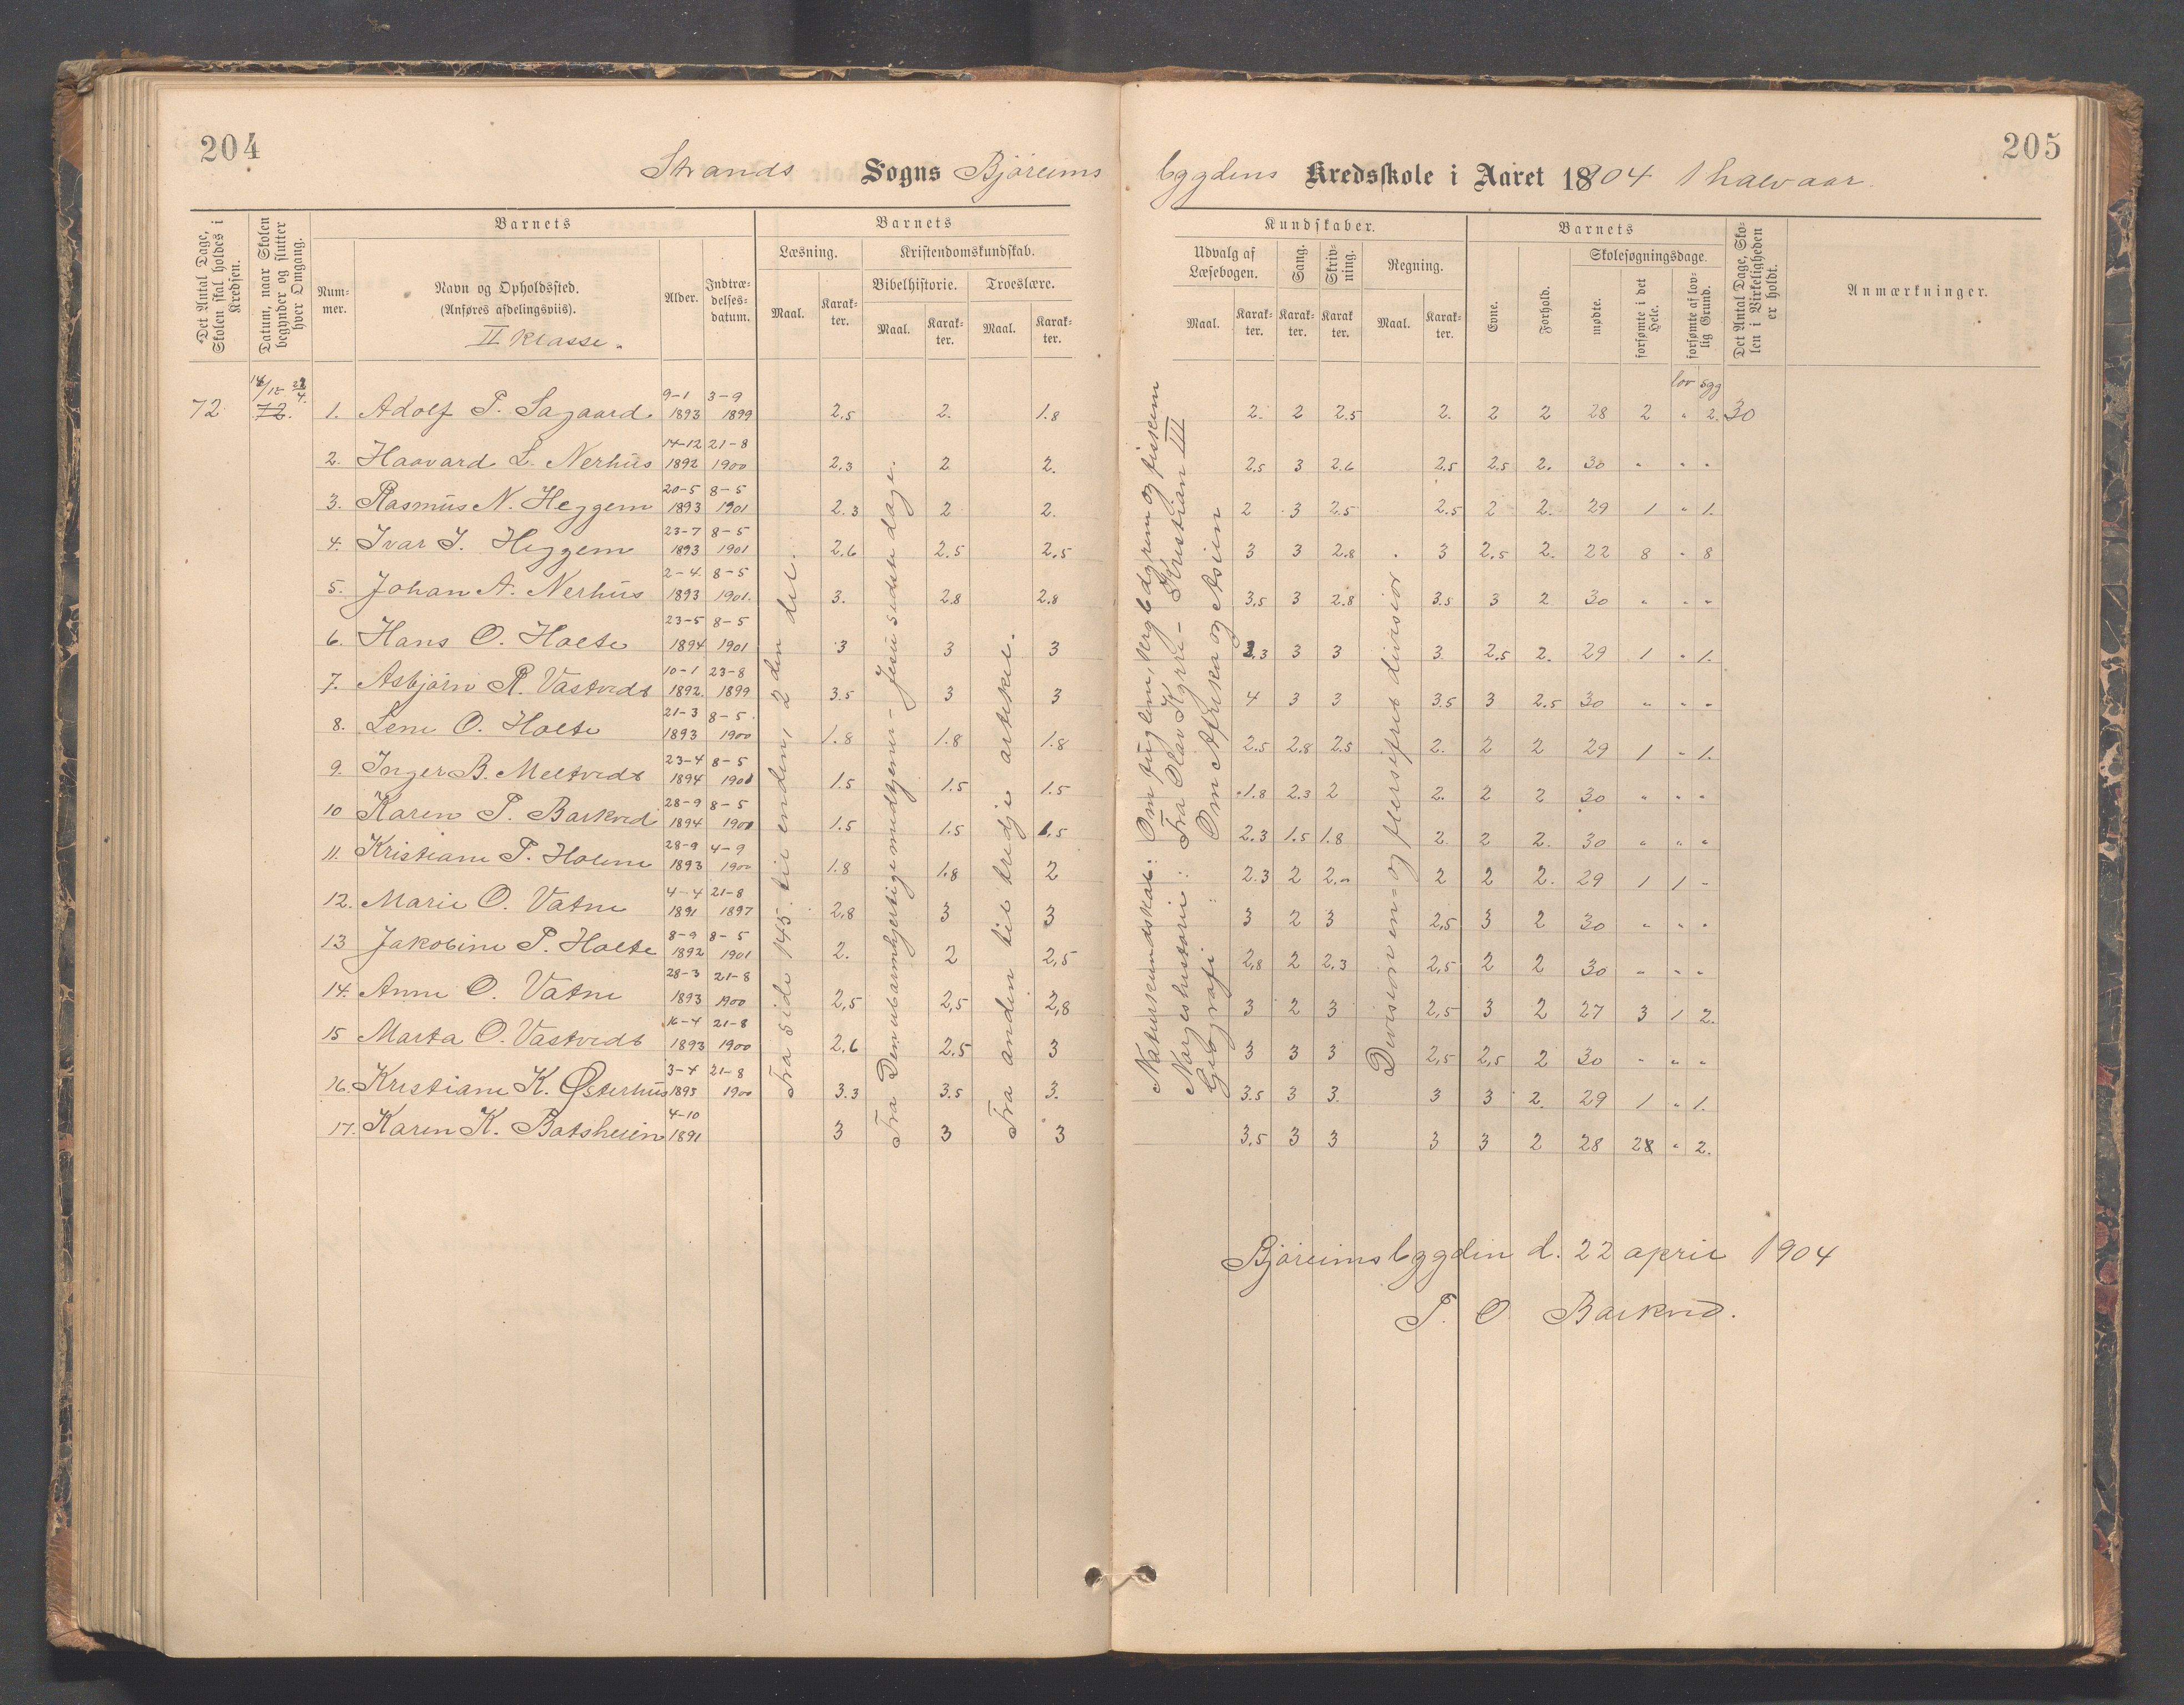 204
205
Strands Sogns Bjøreims
bygdens Kredsskole i Aaret 1804 1 halvaar.
Det Antal Dage, Skolen skal holdes i Kredsen.
Datum, naar Skolen begynder og slutter hver Omgang.
Barnets
Nummer.
Navn og Opholdssted.
(Anføres afdelingsviis).
II Klasse.
Alder.
Indtrædelsesdatum.
Barnets
Læsning.
Maal.
Karakter.
Kristendomskundskab.
Bibelhistorie.
Maal.
Karakter.
Troeslære.
Maal.
Karakter.
Kundskaber.
Udvalg af Læsebogen.
Maal.
Karakter.
Sang.
Karakter.
Skrivning.
Karakter.
Regning.
Maal.
Karakter.
Barnets
Evne.
Forhold.
Skolesøgningsdage.
mødte.
forsømte i det Hele.
forsømte af lovlig Grund.
Det Antal Dage, Skolen i Virkeligheden er holdt.
Anmærkninger.
lov sgg
72 14/12 22/4 72. 1. Adolf P. Sagaard. 9-1 1893 3-9 1899 2,5 2. 1.8 2. 2 2.5 2. 2 2 28 2 " 2. 30
2. Haavard L. Nerhus 14-12 1892 21-8 1900 2,3 2 2. 2,5 3 2.6 2,5 2,5 2. 30 " " "
3. Rasmus N. Heggem 20-5 1893 8-5 1901 2.3 2 2. 2 3 2.5 2.5 2 2. 29 1 " 1.
4. Ivar I. Heggem 23-7 1893 8-5 1901 2,6 2.5 2,5 3 3 2.8 3 2,5 2. 22 8 " 8
5. Johan A. Nerhus 2-4 1893 8-5 1901. 3. 2.8 2.8 3,5 3 2.8 3.5 3 2 30 " " "
6. Hans O. Holte 23-5 1894 8-5 1901 3 3 3 3.3 3 3 3. 2,5 2. 29 1 " 1.
7. Asbjørn R. Vastvedt 10-1 1892. 23-8 1899 3.5 3 3 4 3 3 3.5 3 2.5 30 " " "
8. Lene O. Holte 21-3 1893 8-5 1900 1.8 1.8 1.8 2.5 2.8 2.5 2. 2 2 29 1 " 1.
9. Inger B. Meltvedt 23-4 1894 8-5 1901 1.5 1.5 1.5 1.8 2.3 2 2. 2 2 30 " " "
10 Karen P. Barkved 28-9 1894 8-5 1901 1.5 1.5 1.5 2.3 1.5 1.8 2. 2 2. 30 " " "
11. Kristiane P. Holene 28-9 1893 4-9 1900 1.8 1.8 2 2.3 2 2. 2 2 2. 29 1 1 "
12. Marie O. Vatne 4-4 1891 21-8 1897 2,8 3 3 3 2 3 2,5 3 2 30 " " "
13 Jakobine P. Holte 8-9 1892 8-5 1901 2. 2 2,5 2,8 2 2.3 2,5 2 2 30 " " "
14. Anne O. Vatne 28-3 1893 21-8 1900 2,5 2,5 2,8 3 2 3 2,5 3 2 27 3 1 2.
15 Marta O. Vastvedt 16-4 1893 21-8 1900 2.6 2.5 3 3 3 3 2,5 2,5 2 30 " " "
16. Kristiane K. Østerhus 3-4 1893 21-8 1900 3.3 3.5 3. 3.5 3 3. 3 3 2. 29 1 " 1.
17. Karen K. Botsheim 4-10 1891 3 3 3 3,5 3 3 3 3 2 28 2 " 2.
Fra side 145. til enden, 2den del.
Fra Den ubarmhjertige medtjener - Jesu sidste dage.
Fra anden til tredje artikel.
Naturkundskab: Om fuglene, krybdyrene og fiskene
Norges historie: Fra Olav Kyrre - Kristian III
Geografi: Om Afrika og Asien
Divisionen og flersifret divisior.
Bjøreimsbygden d. 22 april 1904
P. O. Barkved.